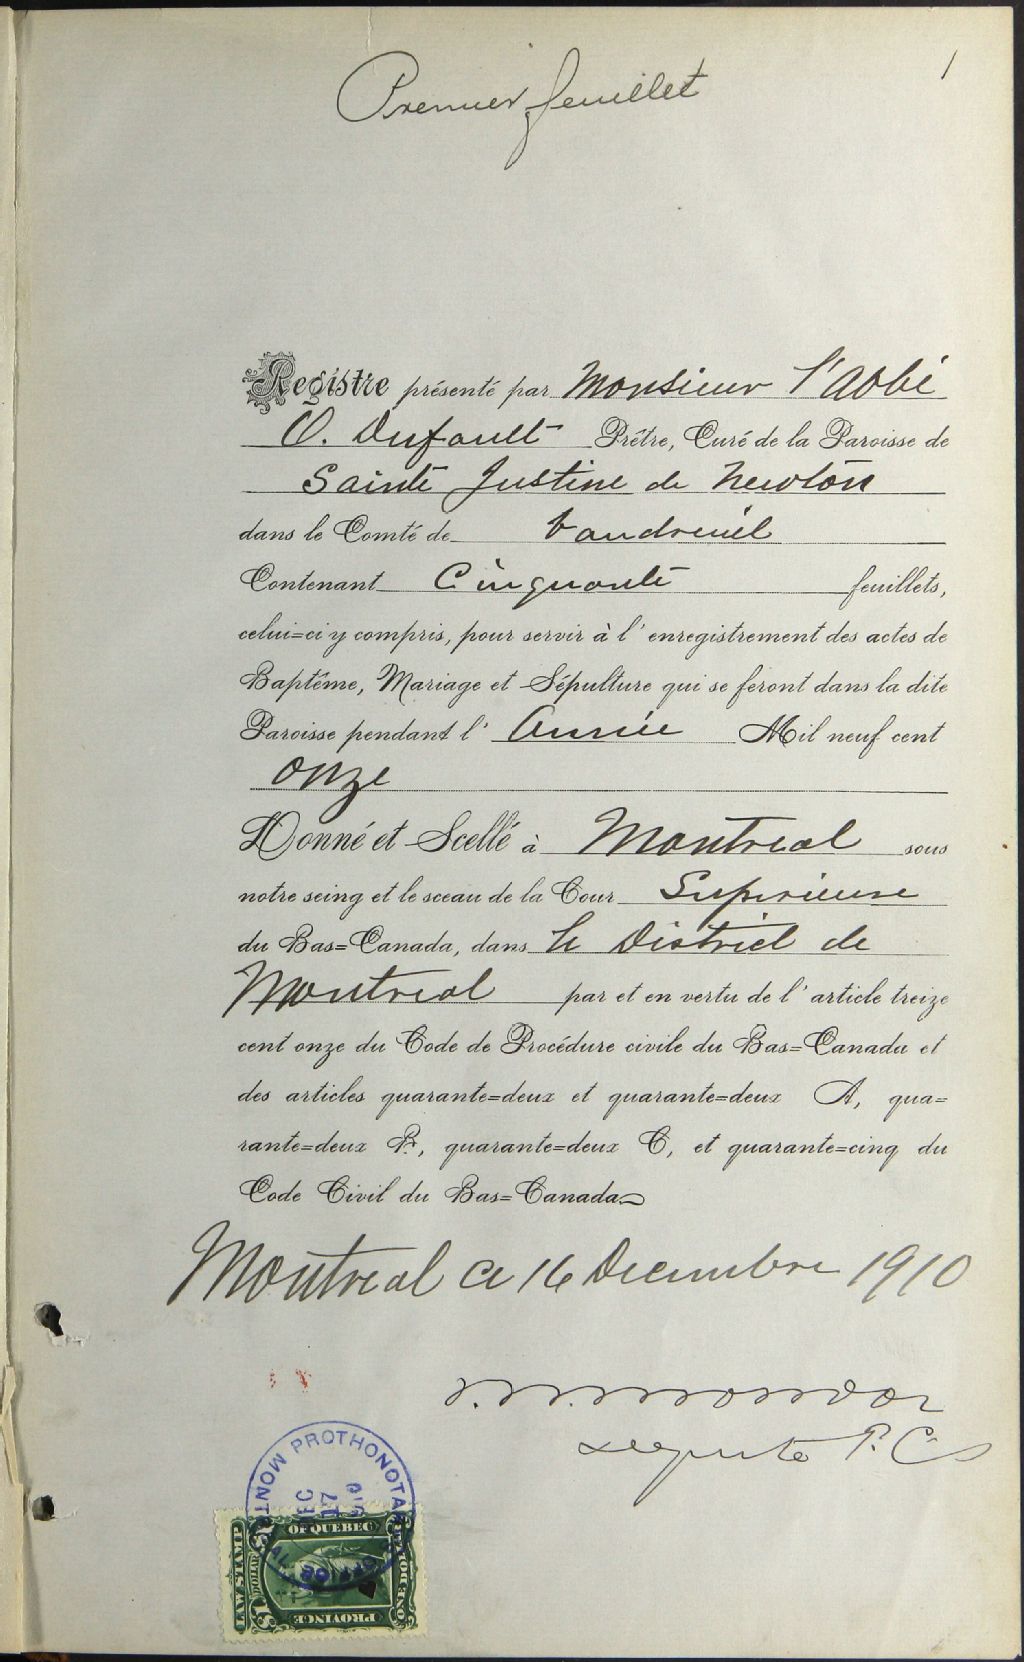 1
Premier feuillet
Registre présenté par Monsieur l'Abbé
O. Dufault Prêtre, Curé de la Paroisse de
Sainte Justine de Newton
dans le Comté de Vaudreuil
Contenant Cinquante feuillets,
celui=ci y compris, pour servir à l'enregistrement des actes de
Baptême, Mariage et Sépulture qui se feront dans la dite
Paroisse pendant l' Année Mil neuf cent
onze
Donné et Scellé à Montreal sous
notre seing et le sceau de la Cour Superieure
du Bas=Canada, dans le District de
Montreal par et en vertu de l'article treize
cent onze du Code de Procédure civile du Bas=Canada et
des articles quarante=deux et quarante=deux A, qua=
rante=deux B, quarante=deux C, et quarante=cinq du
Code Civil du Bas=Canada
Montreal ce 16 Decembre 1910
depute P. C. S
PROTHONOTA
MONT
DEC
17
PROVINCE
OF QUEBEC
LAW STAMP
ONE DOLLAR
$1